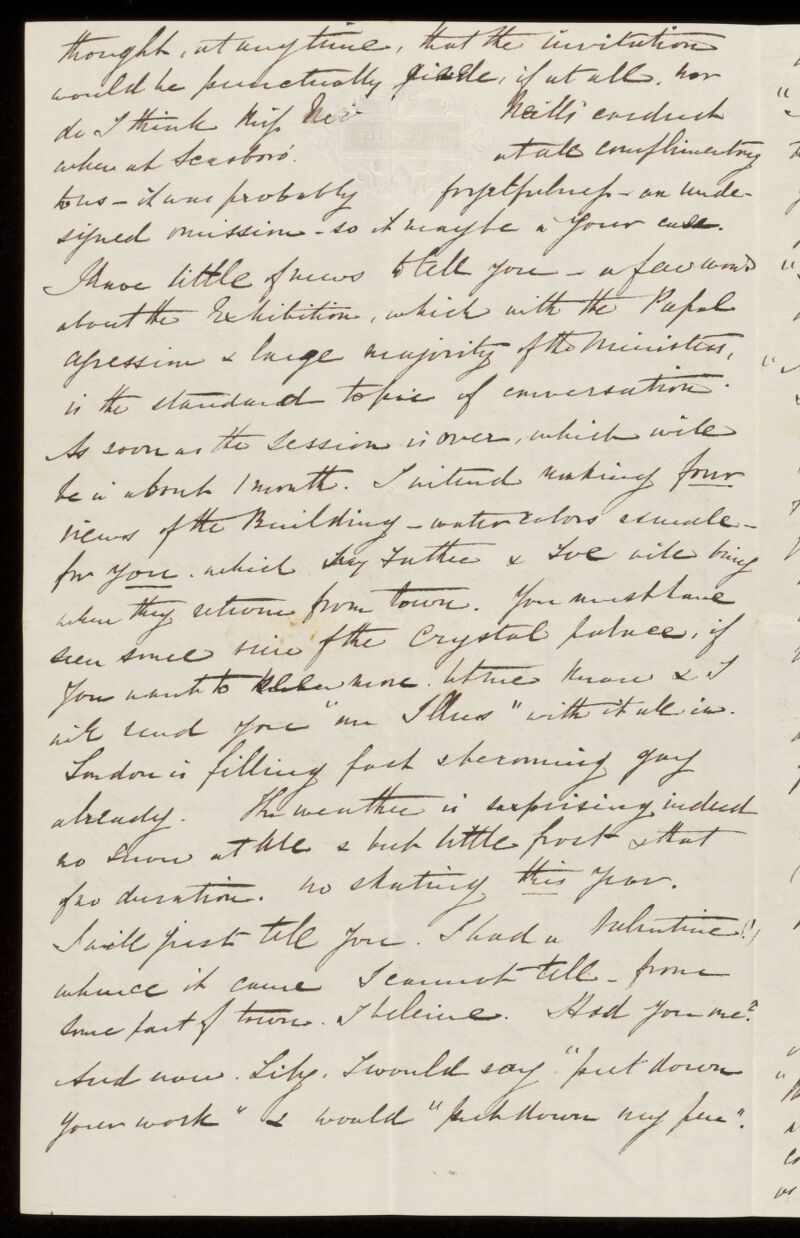 thought, at any time, that the invitation
would be punctually made, if at all. nor
do I think Miss Neill's conduct
when at Scarboro'. at all complimentary
to us - it was probably forgetfulness - an unde-
signed omission - so it may be in your case.
I have little of news to tell you - a few words
about the Exhibition, which with the Papal
agression & large majority of the Ministers,
is the standard topic of conversation.
As soon as the Session is over, which will
be in about 1 month. I intend making four
views of the Building - water colors
for you. which my Father & will bring
when they return from town. You must have
seen some view of the Crystal palace, if
you want to more. let me know & I
will send you "an Illus" with it all in.
London is filling fast & becoming gay
already. The weather is surprising indeed
no snow at all & but little frost & that
of no duration. no skating this year.
I will just tell you. I had a Valentine!!
whence it came I cannot tell - from
some part of town. I beleive. Had you one?
And now. Lily. I would say "put down
your work" & would "put down my pen".